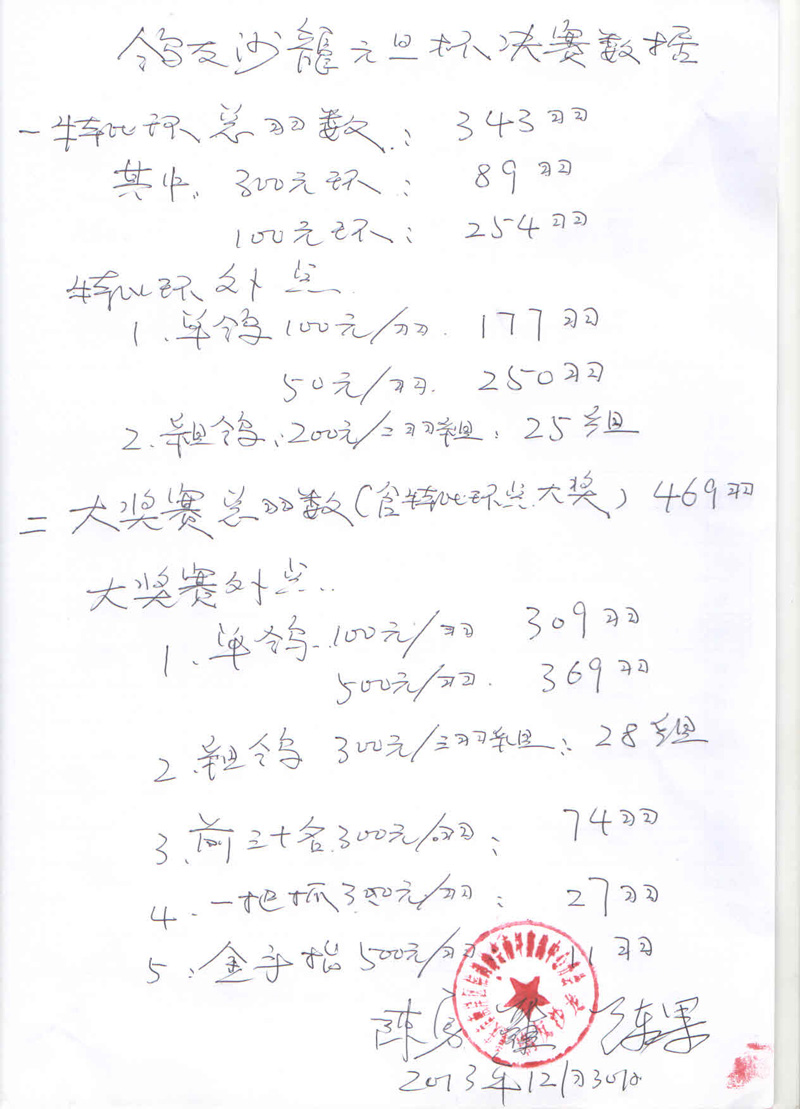 鸽友沙龍元旦杯决赛数据
一特比环总羽数:343羽
其中,300元环:89羽
100元环:254羽
特比环外点
1.单鸽100元/羽.177羽
50元/羽.250羽
2.组鸽,200元/二羽组:25组
二大奖赛总羽数(含特比环点大奖)469羽
大奖赛外点..
1.单鸽..100元/羽 309羽
500元/羽.369羽
2.组鸽 300元/三羽组:28组
3.前三十名.300元/羽:74羽
4.一把抓300元/羽:27羽
5.金手指500元/羽 11羽
陳
2013年12月30日